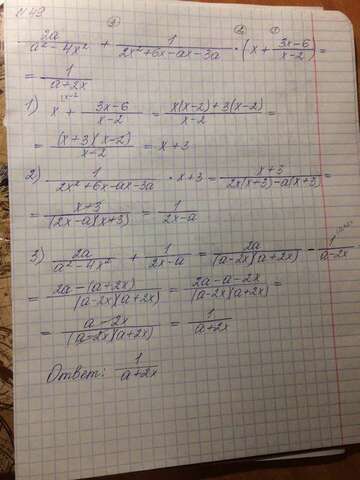 №49
③ ② ①
2a/(a²-4x²) + 1/(2x²+6x-ax-3a) · (x + (3x-6)/(x-2)) =
= 1/(a+2x)
1) x + (3x-6)/(x-2) = (x(x-2)+3(x-2))/(x-2) =
= ((x+3)(x-2))/(x-2) = x+3
2) 1/(2x²+6x-ax-3a) · x+3 = (x+3)/(2x(x+3)-a(x+3)) =
= (x+3)/((2x-a)(x+3)) = 1/(2x-a)
3) 2a/(a²-4x²) + 1/(2x-a) = 2a/((a-2x)(a+2x)) - 1/(a-2x)
= (2a-(a+2x))/((a-2x)(a+2x)) = (2a-a-2x)/((a-2x)(a+2x)) =
= (a-2x)/((a-2x)(a+2x)) = 1/(a+2x)
Ответ: 1/(a+2x)